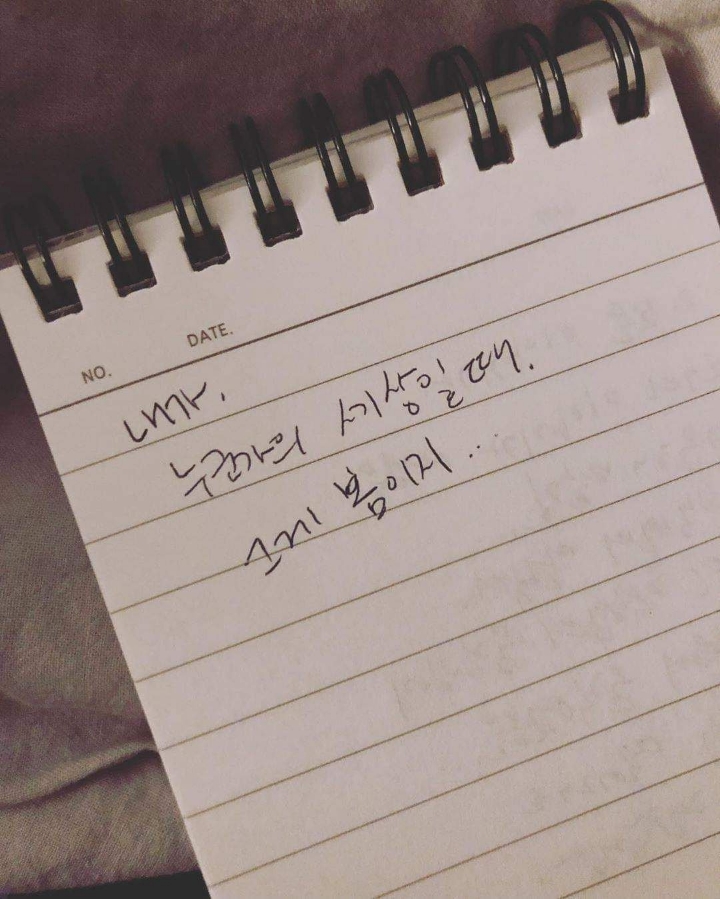 NO.
DATE.
내가.
누군가의 세상일 때.
그게 봄이지...